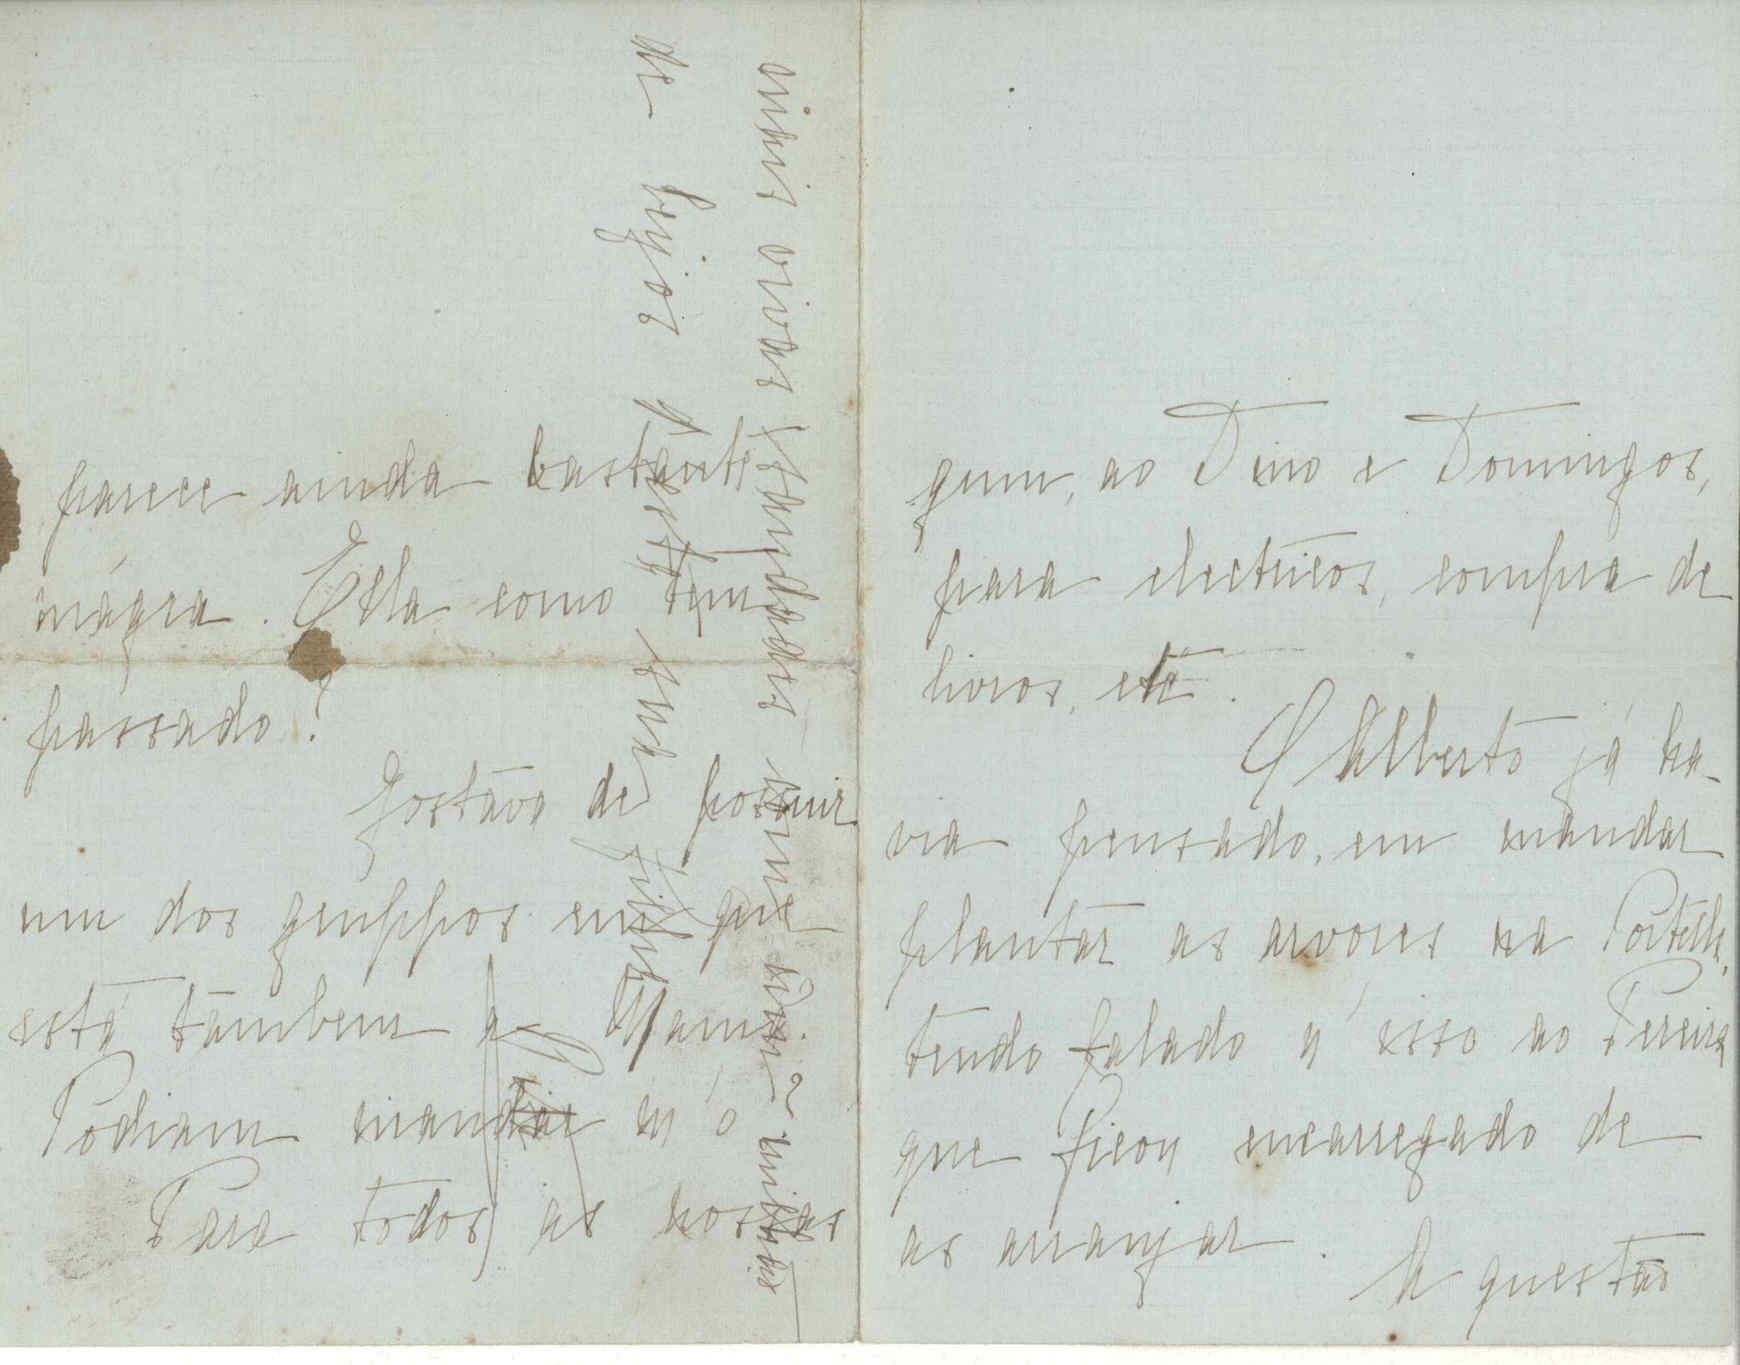 parece ainda bastante
mágra. Ella como tem
passado?
Gostava de possuir
um dos gruppos em que
está tambem a Mami.
Podiam mandar n'o
Para todos as nossas
mais vivas saudades com um milhão
de beijos d'esta sua filha
gum, ao Dino e Domingos,
para electricos, compra de
livros, etc.
O Alberto já ha-
via pensado, em mandar
plantar as arvores na Portella,
tendo falado n'isso ao Pereira
que ficou encarregado de
as arranjar.
A questão